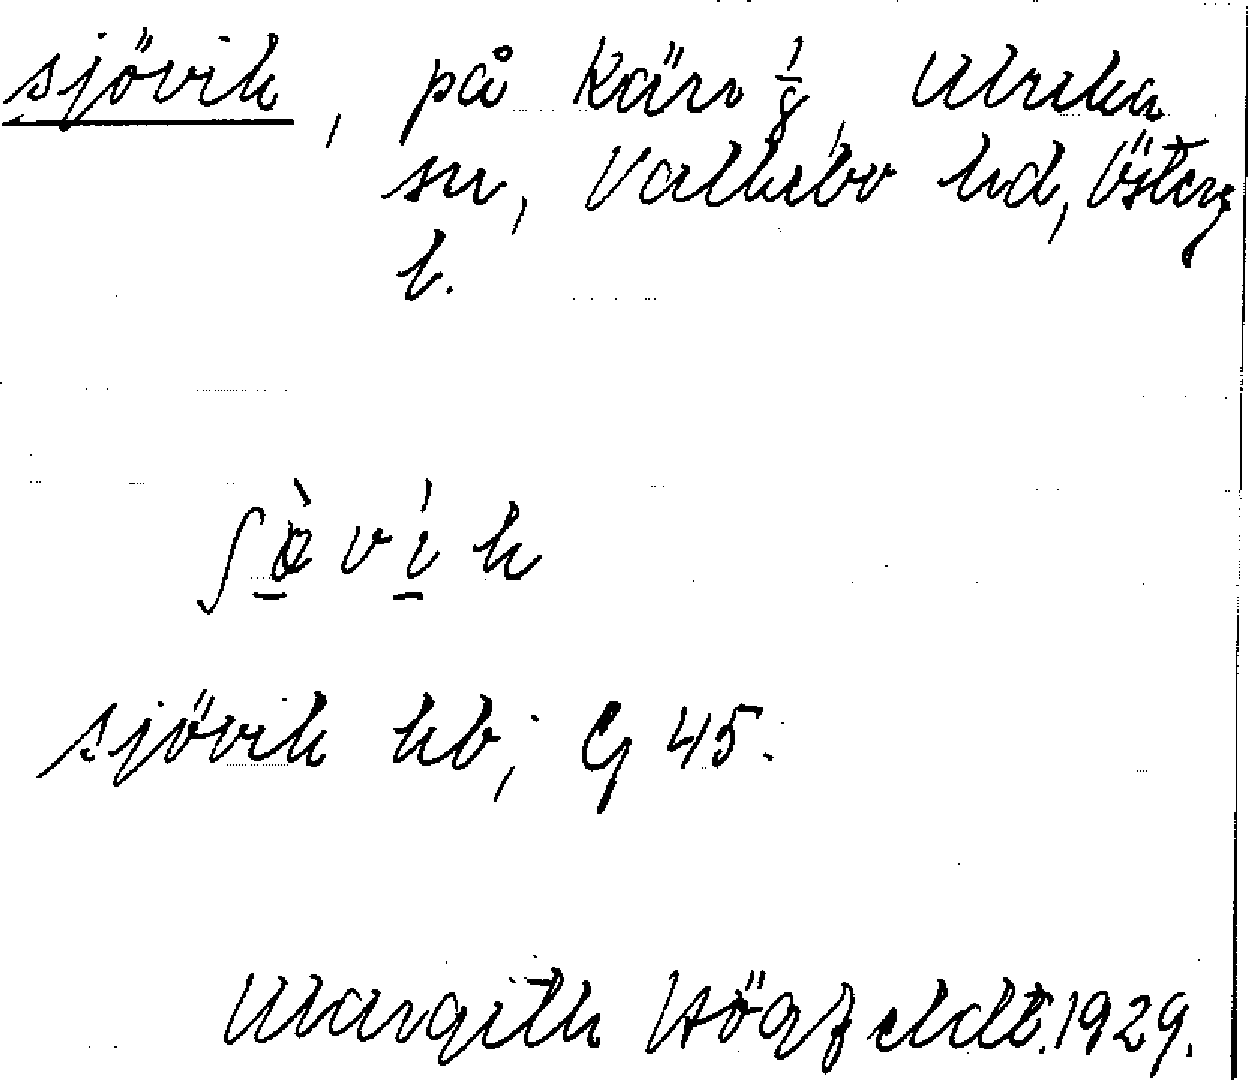 sjövik, på Kärr 1/8, Ulrika
sn, Valkebo hd, Österg
l.
ʃø̀vík
sjövik hb; G 45.
Margith Högfeldt. 1929.